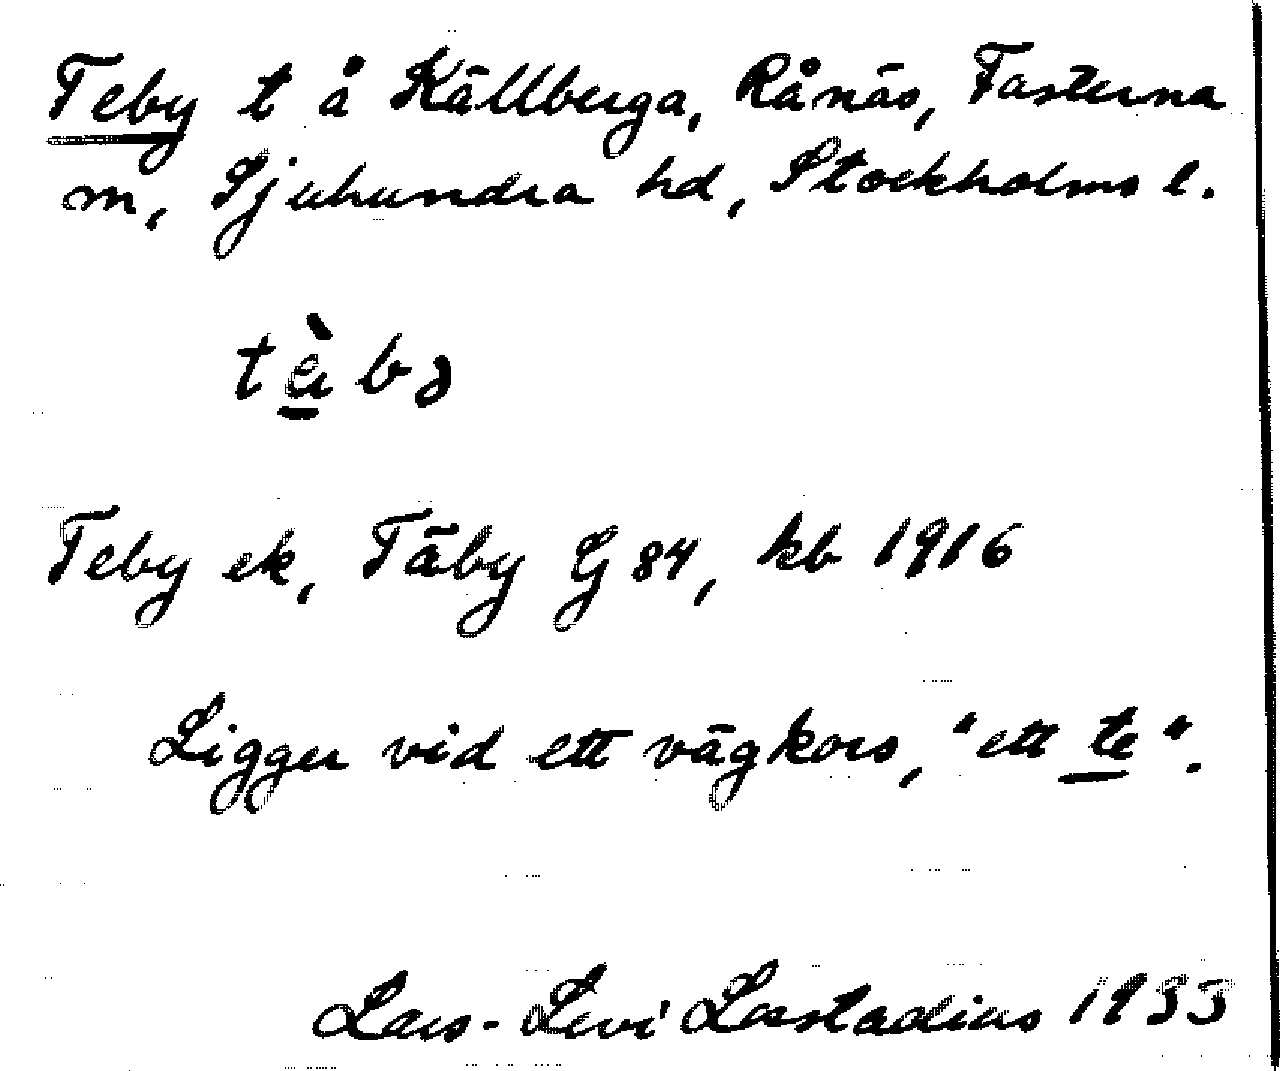 Teby t å Källberga, Rånäs, Fasterna
sn, Sjuhundra hd, Stockholms l.
Teby ek, Täby Gj 84, kb 1916
Ligger vid ett vägkors, "ett te".
Lars-Levi Læstadius 1933